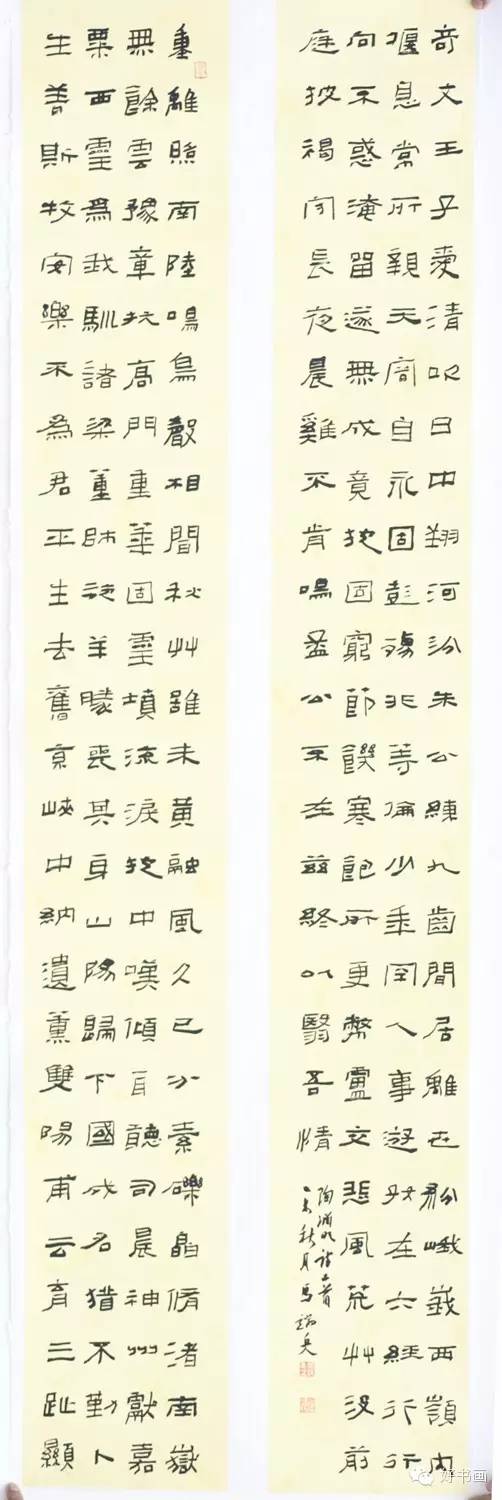 重離照南陸鳴鳥聲相聞秋艸雖未黃融風久已分素礫皛脩渚南嶽
無餘雲豫章抗高門重華固靈墳流淚抱中嘆傾耳聽司晨神州獻嘉
粟西靈為我馴諸梁董師旅羊勝喪其身山陽歸下國成名猶不勤卜
生善斯牧安樂不為君平生去舊京峽中納遺薰雙陽甫云育三趾顯
奇文王子愛清吹日中翔河汾朱公練九齒閒居離世紛峨峩西嶺內
偃息常所親天容自永固彭殤非等倫少年罕人事遊好在六經行行
向不惑淹留遂無成竟抱固窮節饑寒飽所更弊廬交悲風荒艸沒前
庭披褐守長夜晨雞不肯鳴孟公不在茲終以翳吾情
陶淵明詩二首
乙未秋月馬瑞
好书画